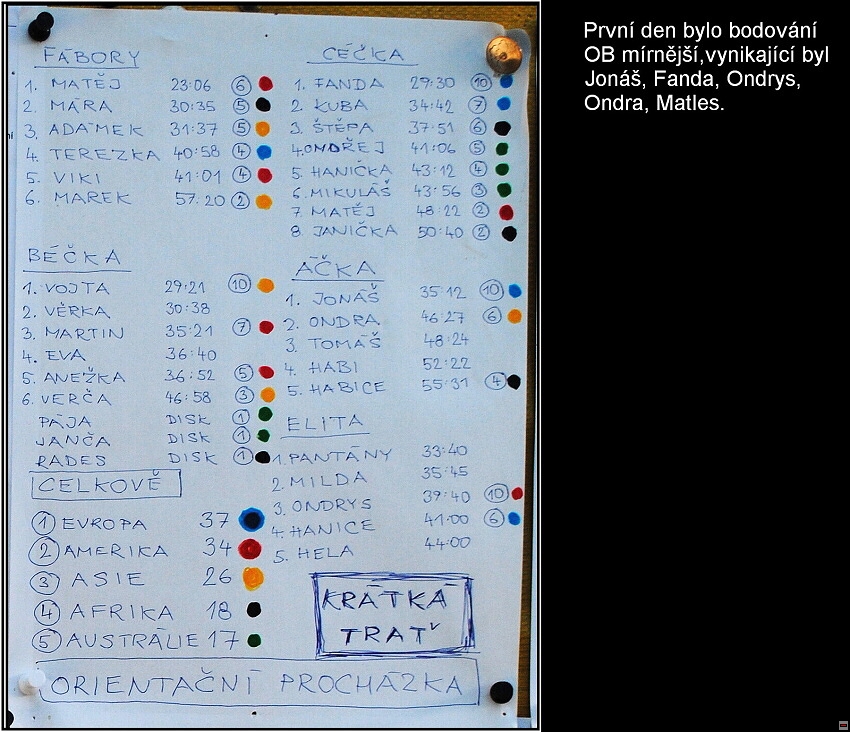 FÁBORY
1. MATĚJ 23:06 6
2. MÁRA 30:35 5
3. ADÁMEK 31:37 5
4. TEREZKA 40:58 4
5. VIKI 41:01 4
6. MAREK 57:20 2
BÉČKA
1. VOJTA 29:21 10
2. VĚRKA 30:38
3. MARTIN 35:21 7
4. EVA 36:40
5. ANEŽKA 36:52 5
6. VERČA 46:58 3
PÁJA DISK 1
JANČA DISK 1
RADES DISK 1
CELKOVĚ
1 EVROPA 37
2 AMERIKA 34
3 ASIE 26
4 AFRIKA 18
5 AUSTRÁLIE 17
CÉČKA
1. FANDA 29:30 10
2 KUBA 34:42 7
3. ŠTĚPA 37:51 6
4. ONDŘEJ 41:06 5
5. HANIČKA 43:12 4
6. MIKULÁŠ 43:56 3
7 MATĚJ 48:22 2
8. JANIČKA 50:40 2
ÁČKA
1. JONÁŠ 35:12 10
2. ONDRA 46:27 6
3 TOMÁŠ 48:24
4. HABI 52:22
5. HABICE 55:31 4
ELITA
1. PANTÁNY 33:40
2. MILDA 35:45
3. ONDRYS 39:40 10
4. HANICE 41:00 6
5. HELA 44:00
KRÁTKÁ
TRAŤ
ORIENTAČNÍ PROCHÁZKA
První den bylo bodování
OB mírnější,vynikající byl
Jonáš, Fanda, Ondrys,
Ondra, Matles.